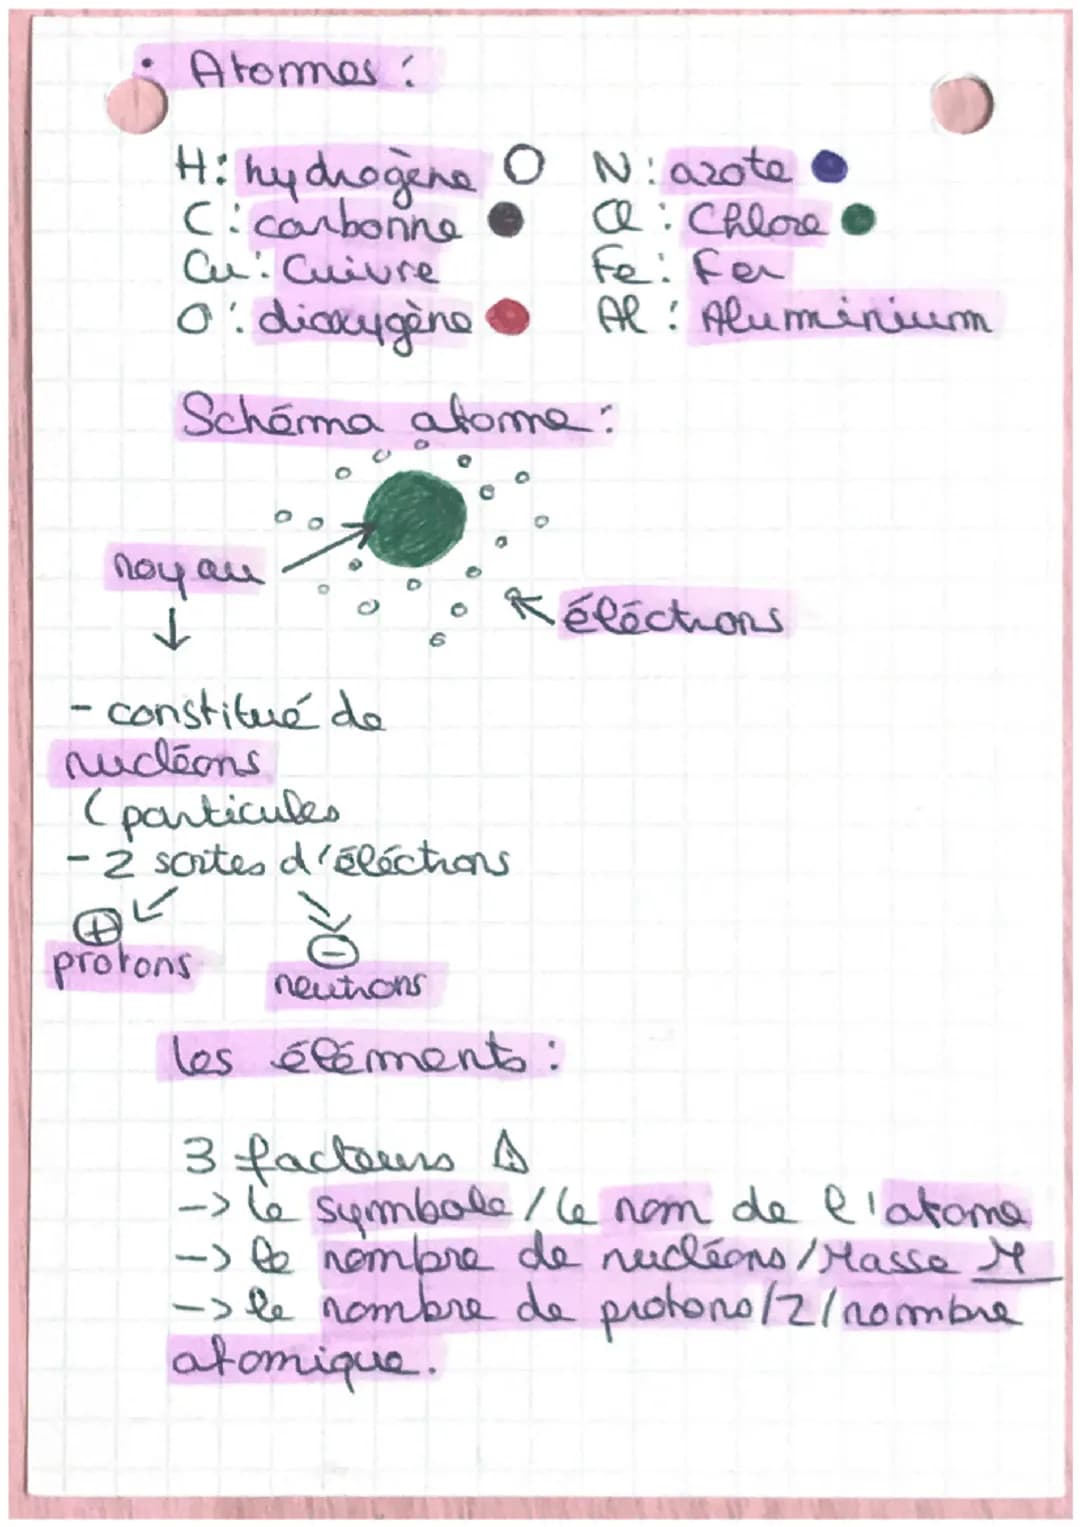 • Atomes :
H : hydrogène
N : azote
C : carbonne
Cl : Chlore
Cu : Cuivre
Fe : Fer
O : dioxygène
Al : Aluminium
Schéma atome :
noyau
éléctrons
- constitué de
nucléons
( particules
- 2 sortes d'éléctrons
+
protons
-
neutrons
les éléments :
3 facteurs ⚠
-> le symbole / le nom de l'atome
-> le nombre de nucléons / Masse M
-> le nombre de protons / Z / nombre
atomique.